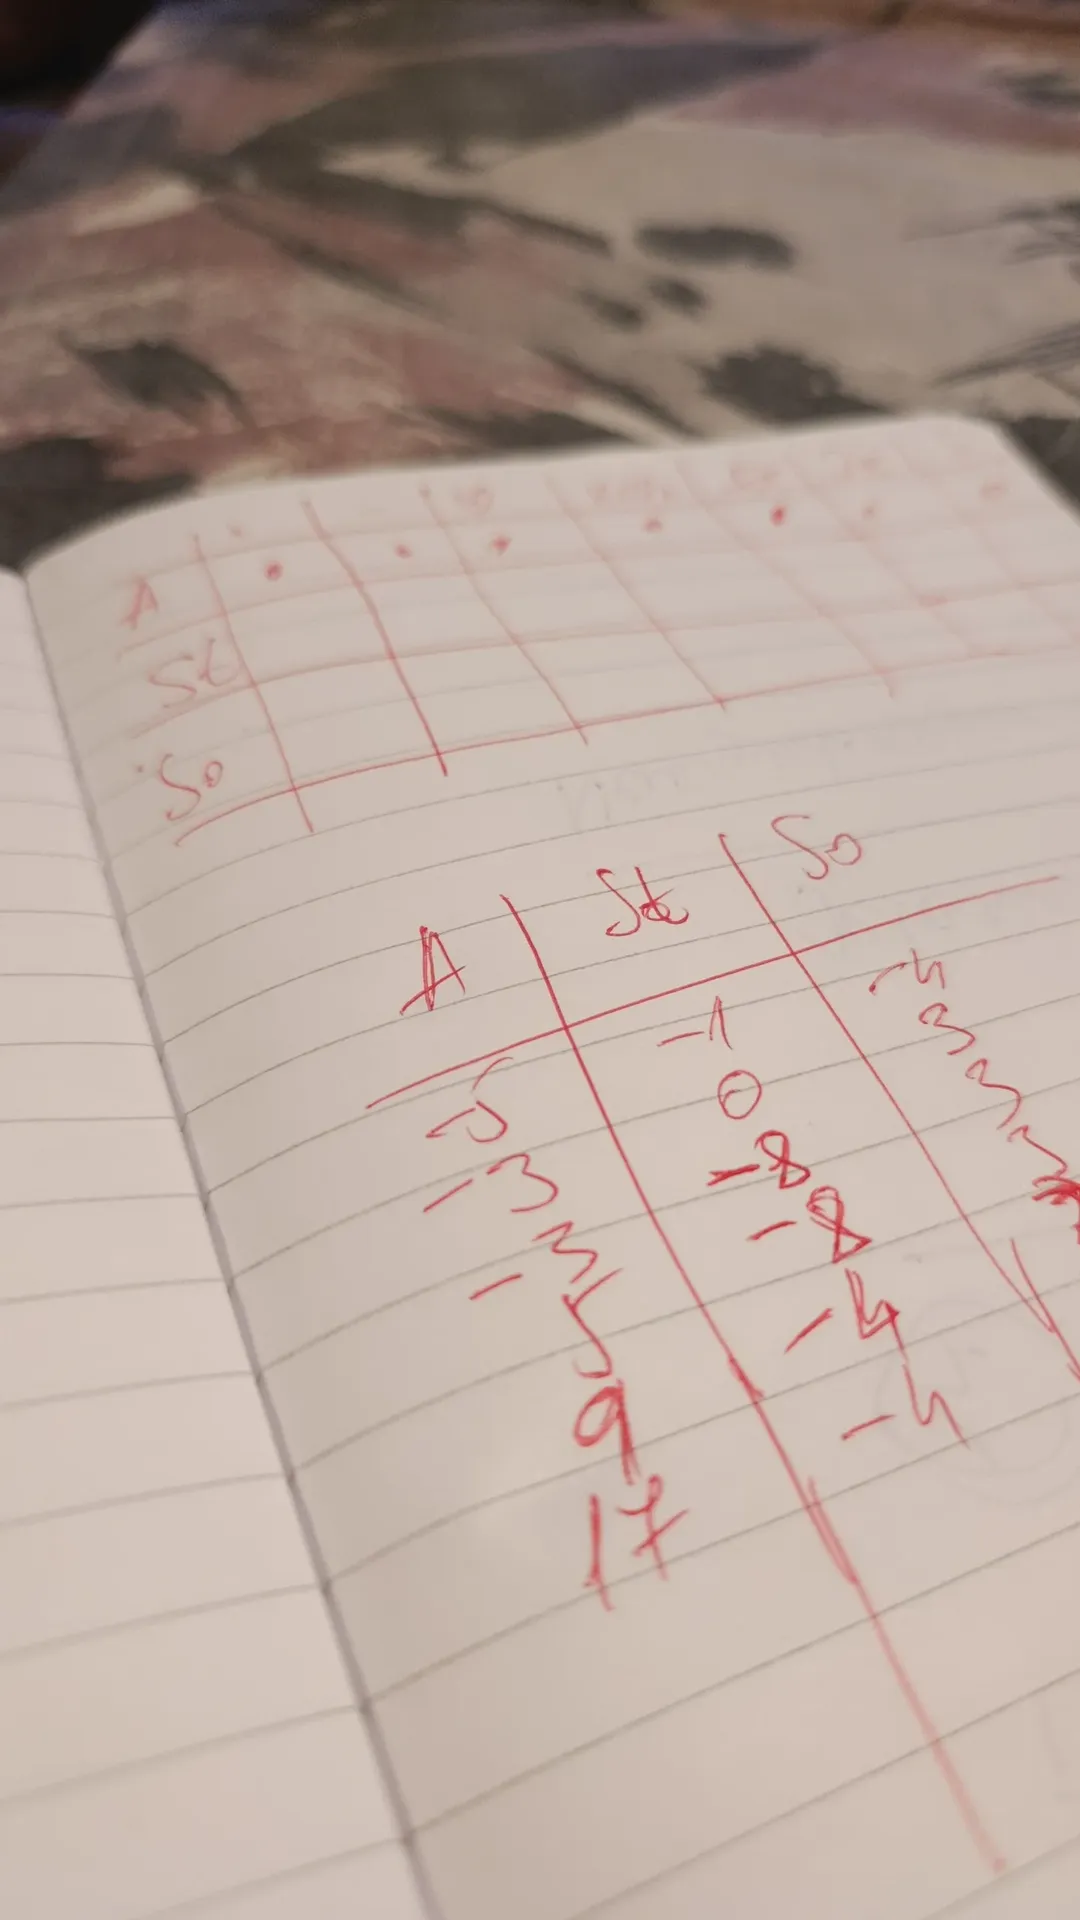 A
St
So
A St So
-5 -1 -4
-3 0 3
-3 -8 3
5 -8 3
9 -4
17 -4